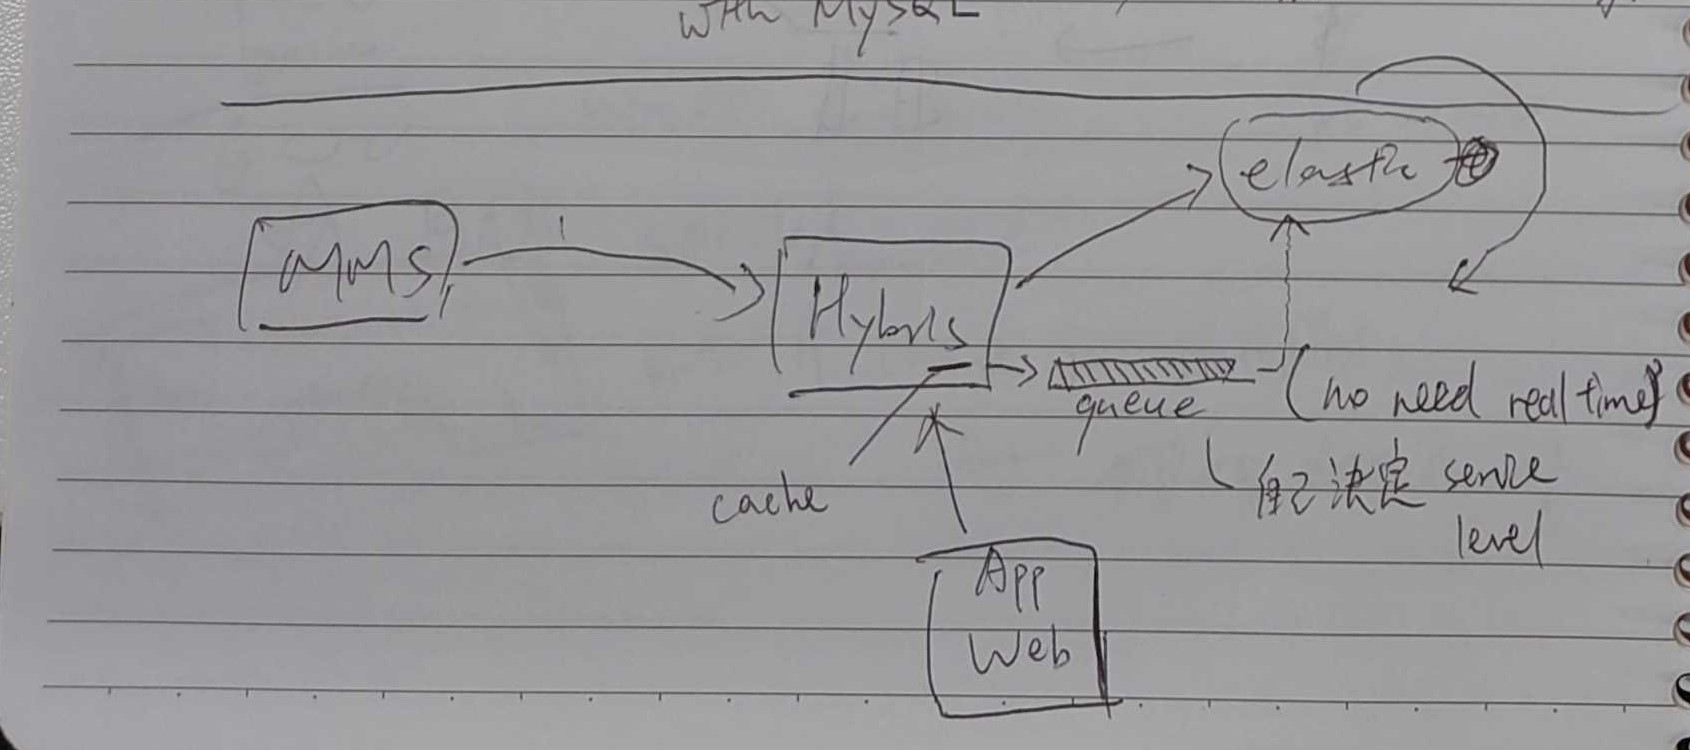 with MySQL
elastic
MMS
Hybris
queue
(no need real time)
cache
自己決定 service
level
App
Web